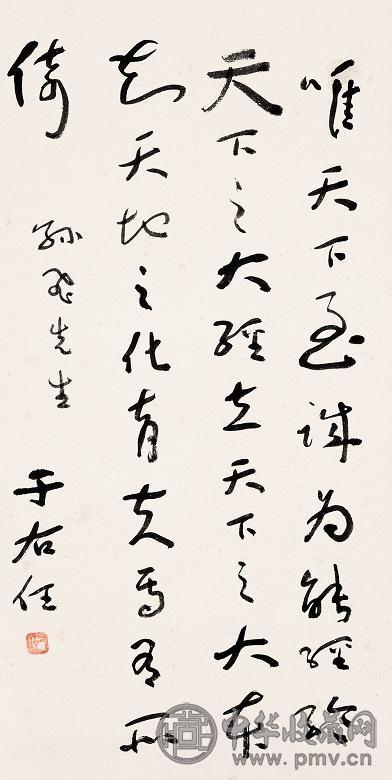 唯天下至诚为能經綸
天下之大經立天下之大本
知天地之化育夫焉有所
倚
孙 先生
于右任
中华收藏网
www.pmv.cn